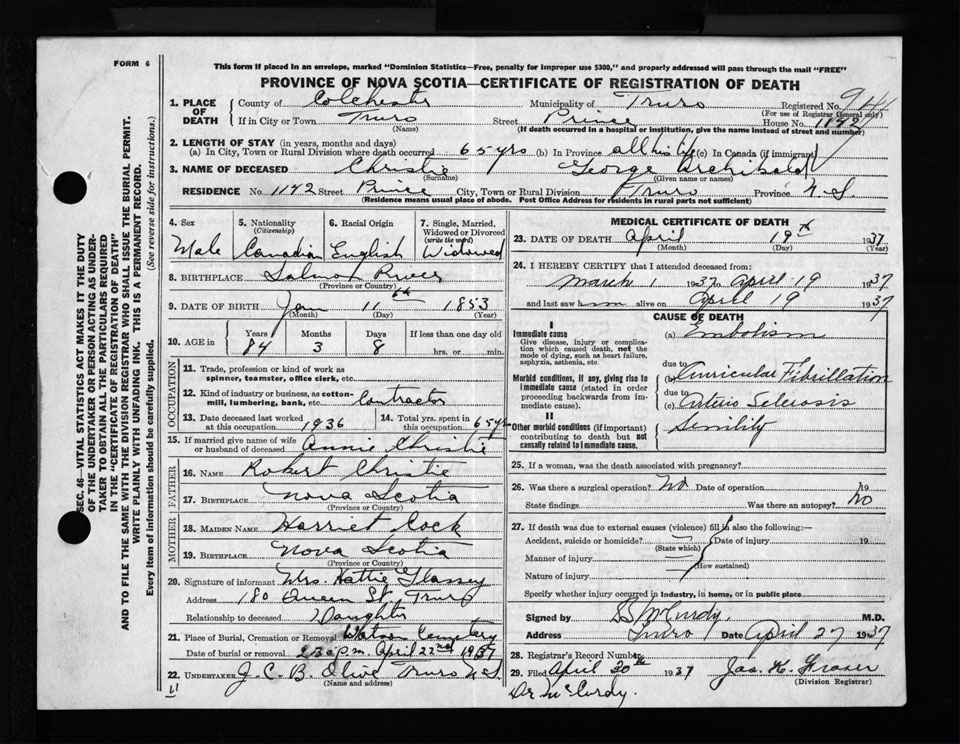 FORM 6
This form if placed in an envelope, marked "Dominion Statistics—Free, penalty for improper use $300," and properly addressed will pass through the mail "FREE"
PROVINCE OF NOVA SCOTIA—CERTIFICATE OF REGISTRATION OF DEATH
SEC. 46—VITAL STATISTICS ACT MAKES IT THE DUTY
OF THE UNDERTAKER OR PERSON ACTING AS UNDER-
TAKER TO OBTAIN ALL THE PARTICULARS REQUIRED
IN THE "CERTIFICATE OF REGISTRATION OF DEATH"
AND TO FILE THE SAME WITH THE DIVISION REGISTRAR WHO SHALL ISSUE THE BURIAL PERMIT.
WRITE PLAINLY WITH UNFADING INK. THIS IS A PERMANENT RECORD.
Every item of information should be carefully supplied. (See reverse side for instructions.)
1. PLACE OF DEATH County of Colchester Municipality of Truro Registered No.
(For use of Registrar General only)
If in City or Town Truro Street Prince House No. 1142
(Name) (If death occurred in a hospital or institution, give the name instead of street and number)
2. LENGTH OF STAY (in years, months and days)
(a) In City, Town or Rural Division where death occurred 65 yrs (b) In Province all his life (c) In Canada (if immigrant)
3. NAME OF DECEASED Christie George Archibald
(Surname) (Given name or names)
RESIDENCE No. 1142 Street Prince City, Town or Rural Division Truro Province N.S.
(Residence means usual place of abode. Post Office Address for residents in rural parts not sufficient)
4. Sex Male
5. Nationality (Citizenship) Canadian
6. Racial Origin English
7. Single, Married, Widowed or Divorced (write the word) Widowed
8. BIRTHPLACE Salmon River
(Province or Country)
9. DATE OF BIRTH Jan 11th 1853
(Month) (Day) (Year)
10. AGE in Years 84 Months 3 Days 8 If less than one day old hrs. or min.
OCCUPATION
11. Trade, profession or kind of work as spinner, teamster, office clerk, etc.
12. Kind of industry or business, as cotton-mill, lumbering, bank, etc. Contractor
13. Date deceased last worked at this occupation 1936
14. Total yrs. spent in this occupation 65 yrs
15. If married give name of wife or husband of deceased Annie Christie
FATHER
16. NAME Robert Christie
17. BIRTHPLACE Nova Scotia
(Province or Country)
MOTHER
18. MAIDEN NAME Harriet Cock
19. BIRTHPLACE Nova Scotia
(Province or Country)
20. Signature of informant Mrs. Hattie Glassey
Address 180 Queen St. Truro
Relationship to deceased Daughter
21. Place of Burial, Cremation or Removal Watson Cemetery
Date of burial or removal 2.30 P.M. April 22nd 1937
22. UNDERTAKER J. C. B. Olive Truro N.S.
(Name and address)
MEDICAL CERTIFICATE OF DEATH
23. DATE OF DEATH April 19th 1937
(Month) (Day) (Year)
24. I HEREBY CERTIFY that I attended deceased from:
March 1 1937 to April 19 1937
and last saw him alive on April 19 1937
CAUSE OF DEATH
I
Immediate cause (a) Embolism
Give disease, injury or complication which caused death, not the mode of dying, such as heart failure, asphyxia, asthenia, etc.
due to
Morbid conditions, if any, giving rise to immediate cause (stated in order proceeding backwards from immediate cause). (b) Auricular Fibrillation
due to
(c) Arterio Sclerosis
II
Other morbid conditions (if important) contributing to death but not causally related to immediate cause. Senility
25. If a woman, was the death associated with pregnancy?
26. Was there a surgical operation? No Date of operation 19
State findings Was there an autopsy? No
27. If death was due to external causes (violence) fill in also the following:—
Accident, suicide or homicide? Date of injury 19
(State which)
Manner of injury
(How sustained)
Nature of injury
Specify whether injury occurred in industry, in home, or in public place
Signed by McCurdy, M.D.
Address Truro Date April 27 1937
28. Registrar's Record Number
29. Filed April 30th 1937 Jas. K. Fraser
(Division Registrar)
Dr McCurdy.